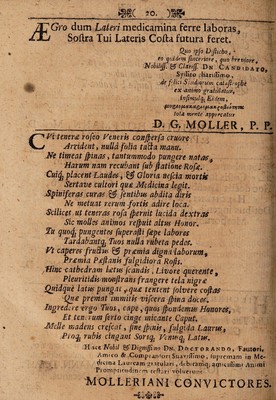 20.
ÆGro dum Lateri medicamina ferre laboras,
Sostra Tui Lateris Costa futura feret.
Quo ipso Disticho,
eo quidem sinceriore, quo breviore,
Nobiliss. & Clariss. DN. CANDIDATO,
Sysſito chariſſimo,
de felici Studiorum
ex animo gratulatur,
Eidem,
tota mente apprecatur
D. G. MOLLER, P. P.
CVi teneræ roſeo Veneris conſperſa cruore
Arrident, nullâ folia tacta manu.
Ne timeat ſpinas, tantummodo pungere natas,
Harum nam recubant ſub ſtatione Roſæ.
Cuiq; placent Laudes, & Gloria neſcia mortis
Sertave cultori quæ Medicina legit.
Spiniferas curæ & ſentibus abdita diris
Ne metuat rerum fortis adire loca.
Scilicet ut teneras roſa ſpernit lucida dextras
Sic molles animos reſpuit altus Honor.
Tu quoq; pungentes ſuperaſti ſæpe labores
Tardabantq; Tuos nulla rubeta pedes.
Vt caperes fructus & præmia digna laborum,
Præmia Pæſtanis fulgidiora Roſis.
Hinc cathedram latus ſcandis, Livore querente,
Pleuritidis monſtrans frangere tela nigræ
Quidque latus pungat, quæ tentent pulvere coſtas
Quæ premat immitis viſcera ſpina docet.
Ingredere ergo Tuos, cape, quos ſpondemus Honores,
Et tenerum ſerto cinge micante Caput.
Molle madens creſcat, ſine ſpinis, fulgida Laurus,
Pioq; rubis cingant Soriq; Venuq; Latus.
Hæce Nobil & Digniſſimo DN. DOCTORANDO, Fautori,
Amico & Compatriotæ Suaviſſimo, ſupremam in Me-
dicina Lauream gratulari, debitamq; amiciſſimi Animi
Promptitudinem teſtari voluerunt
MOLLERIANI CONVICTORES.